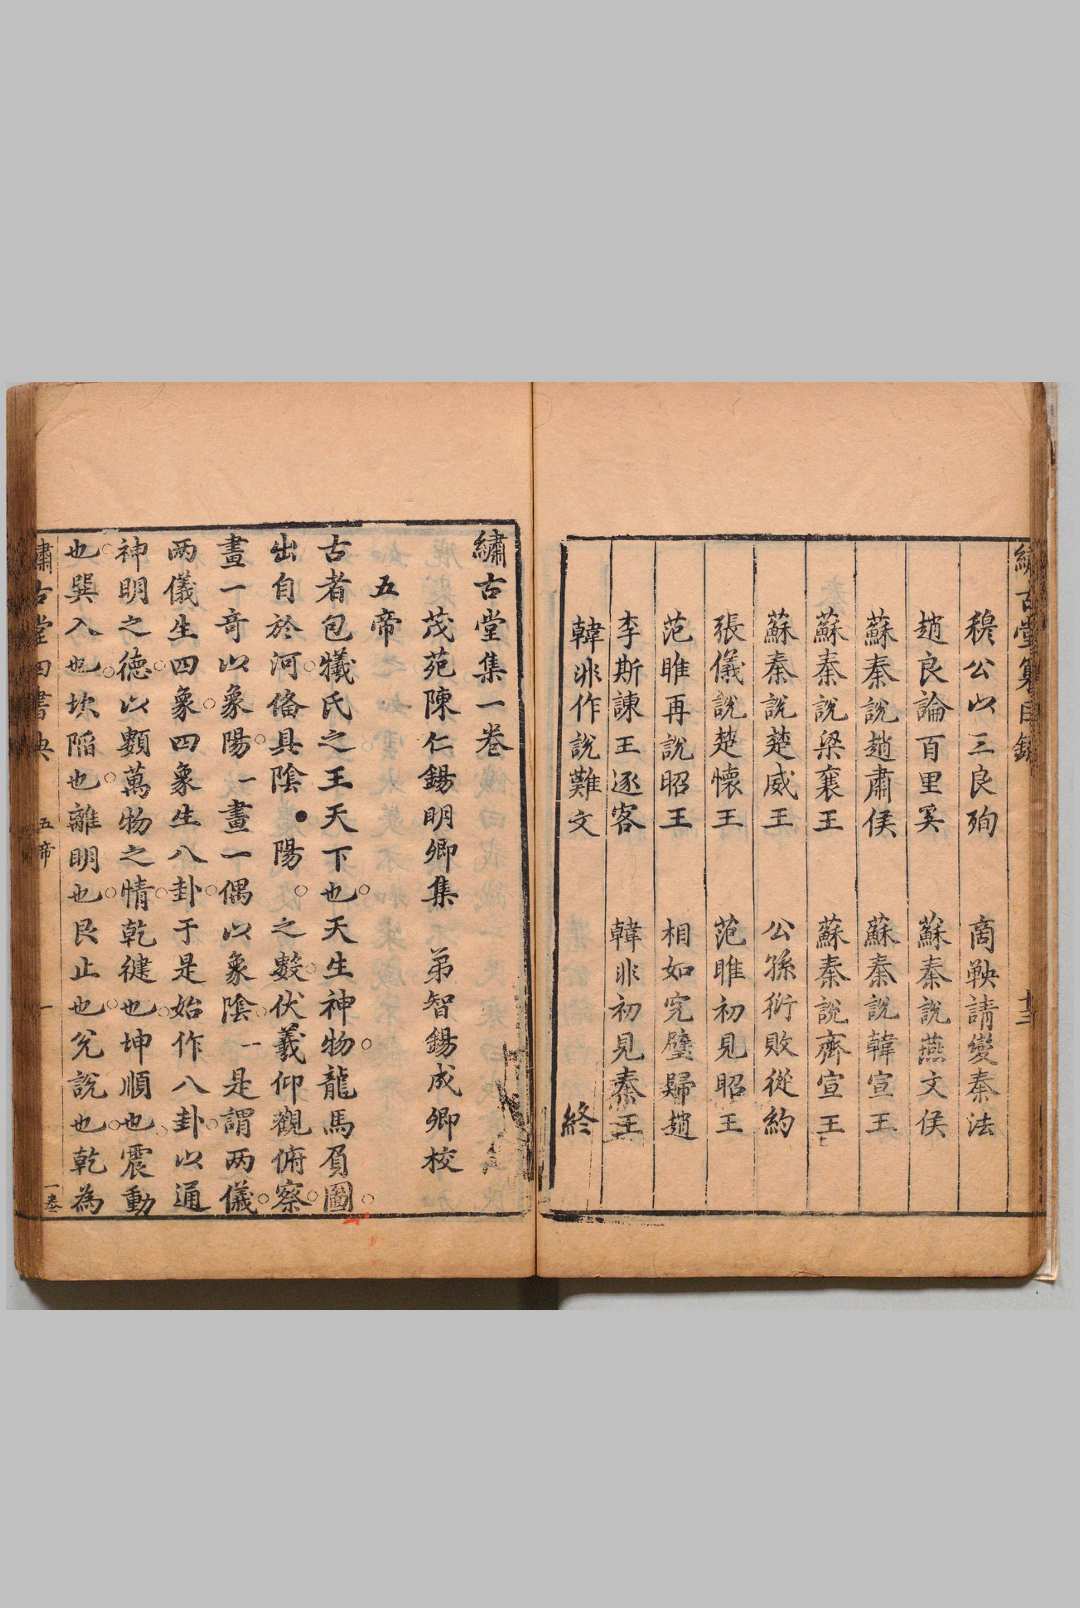 穆公以三良殉 商鞅請變秦法
趙良論百里奚 蘇秦說燕文侯
蘇秦說趙肅侯 蘇秦說韓宣王
蘇秦說梁襄王 蘇秦說齊宣王
蘇秦說楚威王 公孫衍敗從約
張儀說楚懷王 范睢初見昭王
范睢再說昭王 相如完璧歸趙
李斯諫王逐客 韓非初見秦王
韓非作說難文 終
繡古堂集一卷
茂苑陳仁錫明卿集 弟智錫成卿校
五帝
古者包犧氏之王天下也天生神物龍馬負圖
出自於河俻具陰●陽○之數伏羲仰觀俯察
畫一奇以象陽一畫一偶以象陰--是謂两儀
两儀生四象四象生八卦于是始作八卦以通
神明之德以類萬物之情乾健也坤順也震動
也巽入也坎陷也離明也艮止也兌說也乾為
五帝 一 一卷